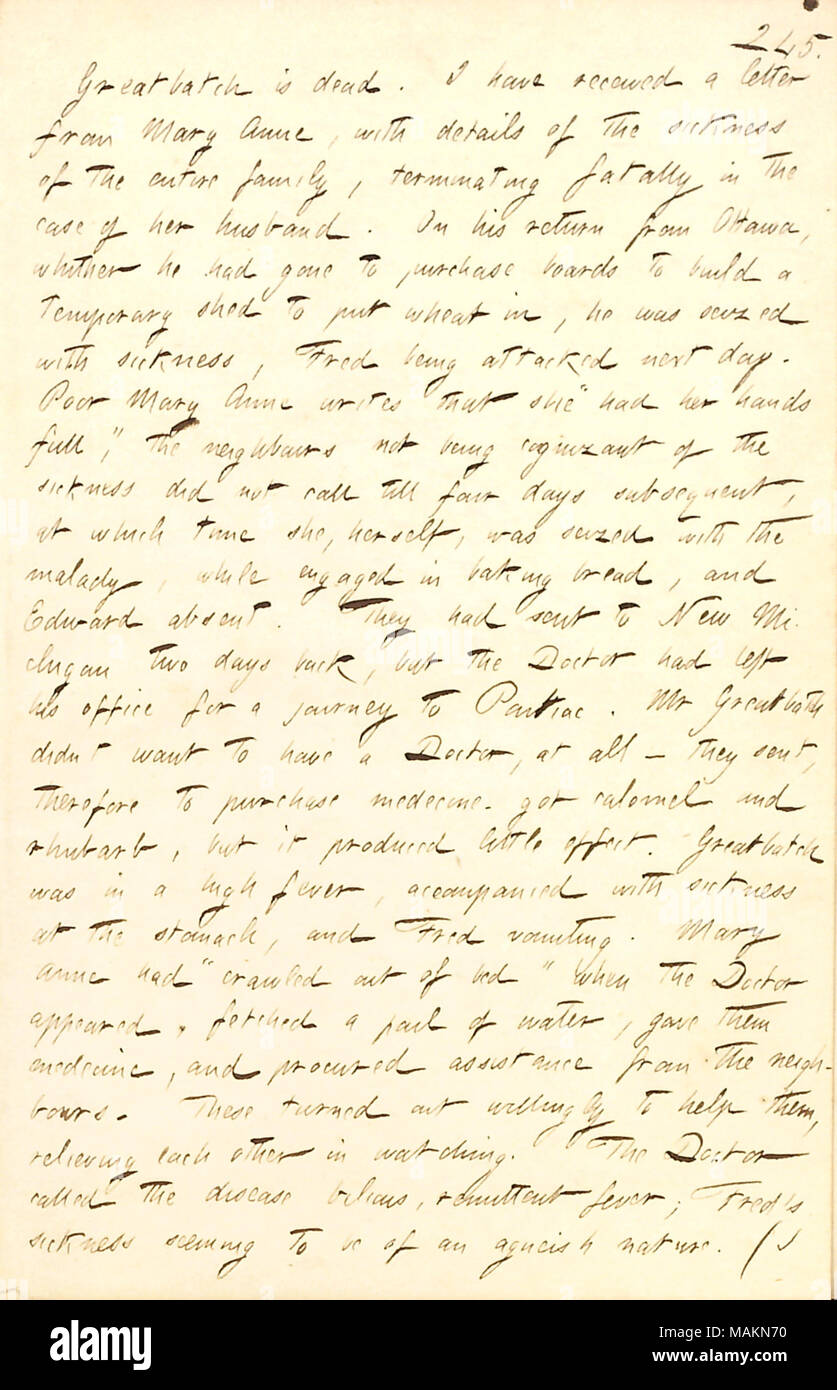 245.
Greatbatch is dead. I have received a letter
from Mary Anne, with details of the sickness
of the entire family, terminating fatally in the
case of her husband. On his return from Ottawa,
whither he had gone to purchase boards to build a
temporary shed to put wheat in, he was seized
with sickness, Fred being attacked next day.
Poor Mary Anne writes that she "had her hands
full", the neighbours not being cognizant of the
sickness did not call till four days subsequent,
at which time she, herself, was seized with the
malady, while engaged in baking bread, and
Edward absent. They had sent to New Mi-
chigan two days back, but the Doctor had left
his office for a journey to Pontiac. Mr Greatbatch
didn't want to have a Doctor, at all — they sent,
therefore to purchase medecine. got calomel and
rhubarb, but it produced little effect. Greatbatch
was in a high fever, accompanied with sickness
at the stomach, and Fred vomiting. Mary
Anne had "crawled out of bed" when the Doctor
appeared, fetched a pail of water, gave them
medecine, and procured assistance from the neigh-
bours. These turned out willingly to help them,
relieving each other in watching. The Doctor
called the disease bilious, remittent fever; Fred's
sickness seeming to be of an agueish nature. (I
alamy
Image ID: MAKN70
www.alamy.com